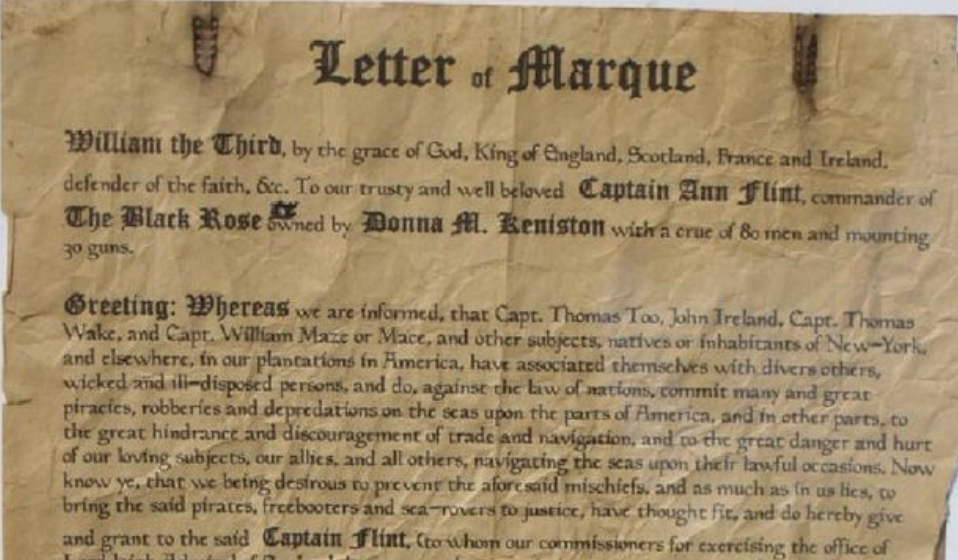 Letter of Marque
William the Third, by the grace of God, King of England, Scotland, France and Ireland,
defender of the faith, &c. To our trusty and well beloved Captain Ann Flint, commander of
The Black Rose owned by Donna M. Keniston with a crue of 80 men and mounting
30 guns.
Greeting: Whereas we are informed, that Capt. Thomas Too, John Ireland, Capt. Thomas
Wake, and Capt. William Maze or Mace, and other subjects, natives or inhabitants of New-York,
and elsewhere, in our plantations in America, have associated themselves with divers others,
wicked and ill-disposed persons, and do, against the law of nations, commit many and great
piracies, robberies and depredations on the seas upon the parts of America, and in other parts, to
the great hindrance and discouragement of trade and navigation, and to the great danger and hurt
of our loving subjects, our allies, and all others, navigating the seas upon their lawful occasions. Now
know ye, that we being desirous to prevent the aforesaid mischiefs, and as much as in us lies, to
bring the said pirates, freebooters and sea-rovers to justice, have thought fit, and do hereby give
and grant to the said Captain Flint, (to whom our commissioners for exercising the office of